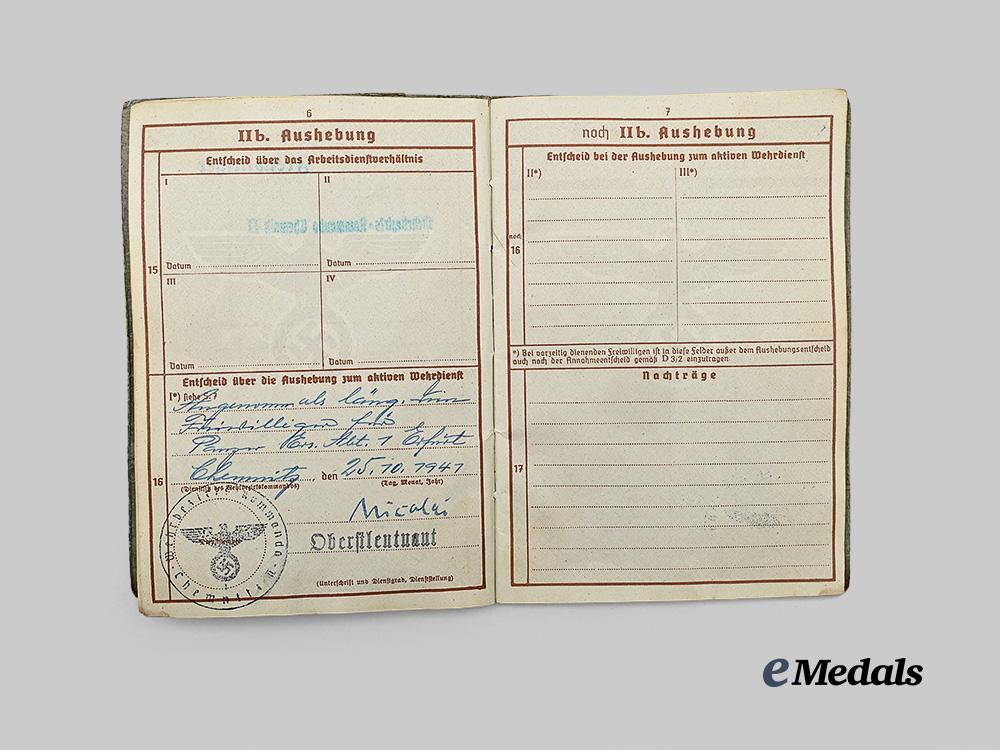 6
IIb. Aushebung
Entscheid über das Arbeitsdienstverhältnis
I
II
Wehrbezirks-Kommando Chemnitz II
15
Datum
Datum
III
IV
Datum
Datum
Entscheid über die Aushebung zum aktiven Wehrdienst
I*) siehe S. 7
Angenomm als läng. dien
Freiwilliger für
Panzer Ers. Abt. 1 Erfurt
16
Chemnitz, den 25.10.1941
(Dienstsitz des Wehrbezirkskommandos) (Tag, Monat, Jahr)
Nicolai
Oberstleutnant
(Unterschrift und Dienstgrad, Dienststellung)
Wehrbezirkskommando
Chemnitz II
7
noch IIb. Aushebung
Entscheid bei der Aushebung zum aktiven Wehrdienst
II*)
III*)
noch
16
*) Bei vorzeitig dienenden Freiwilligen ist in diese Felder außer dem Aushebungsentscheid
auch noch der Annahmeentscheid gemäß D 3/2 einzutragen
Nachträge
17
eMedals